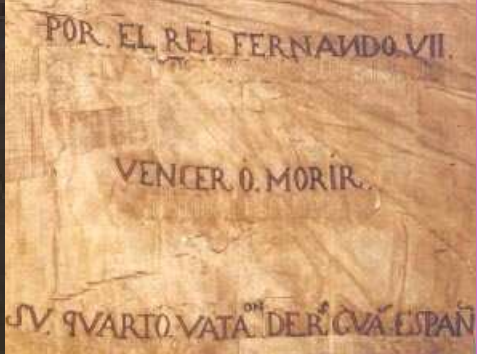 POR. EL REI FERNANDO.VII.
VENCER O. MORIR.
SV. QVARTO. VATA.ON DE R.S GVA. ESPAÑ